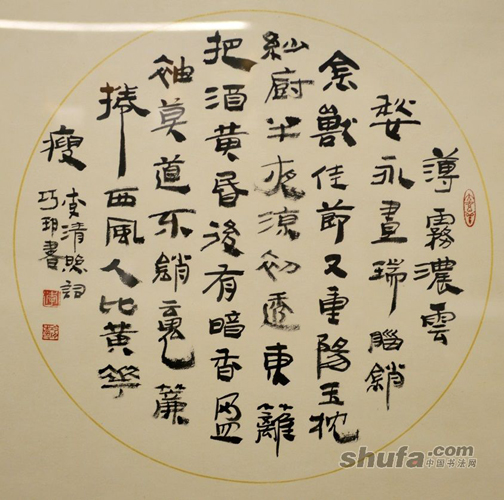 薄霧濃雲
愁永晝瑞腦銷
金獸佳節又重陽玉枕
紗廚半夜涼初透東籬
把酒黃昏後有暗香盈
袖莫道不銷魂簾
捲西風人比黃華
瘦
李清照詞
巧書
shufa.com
中国书法网